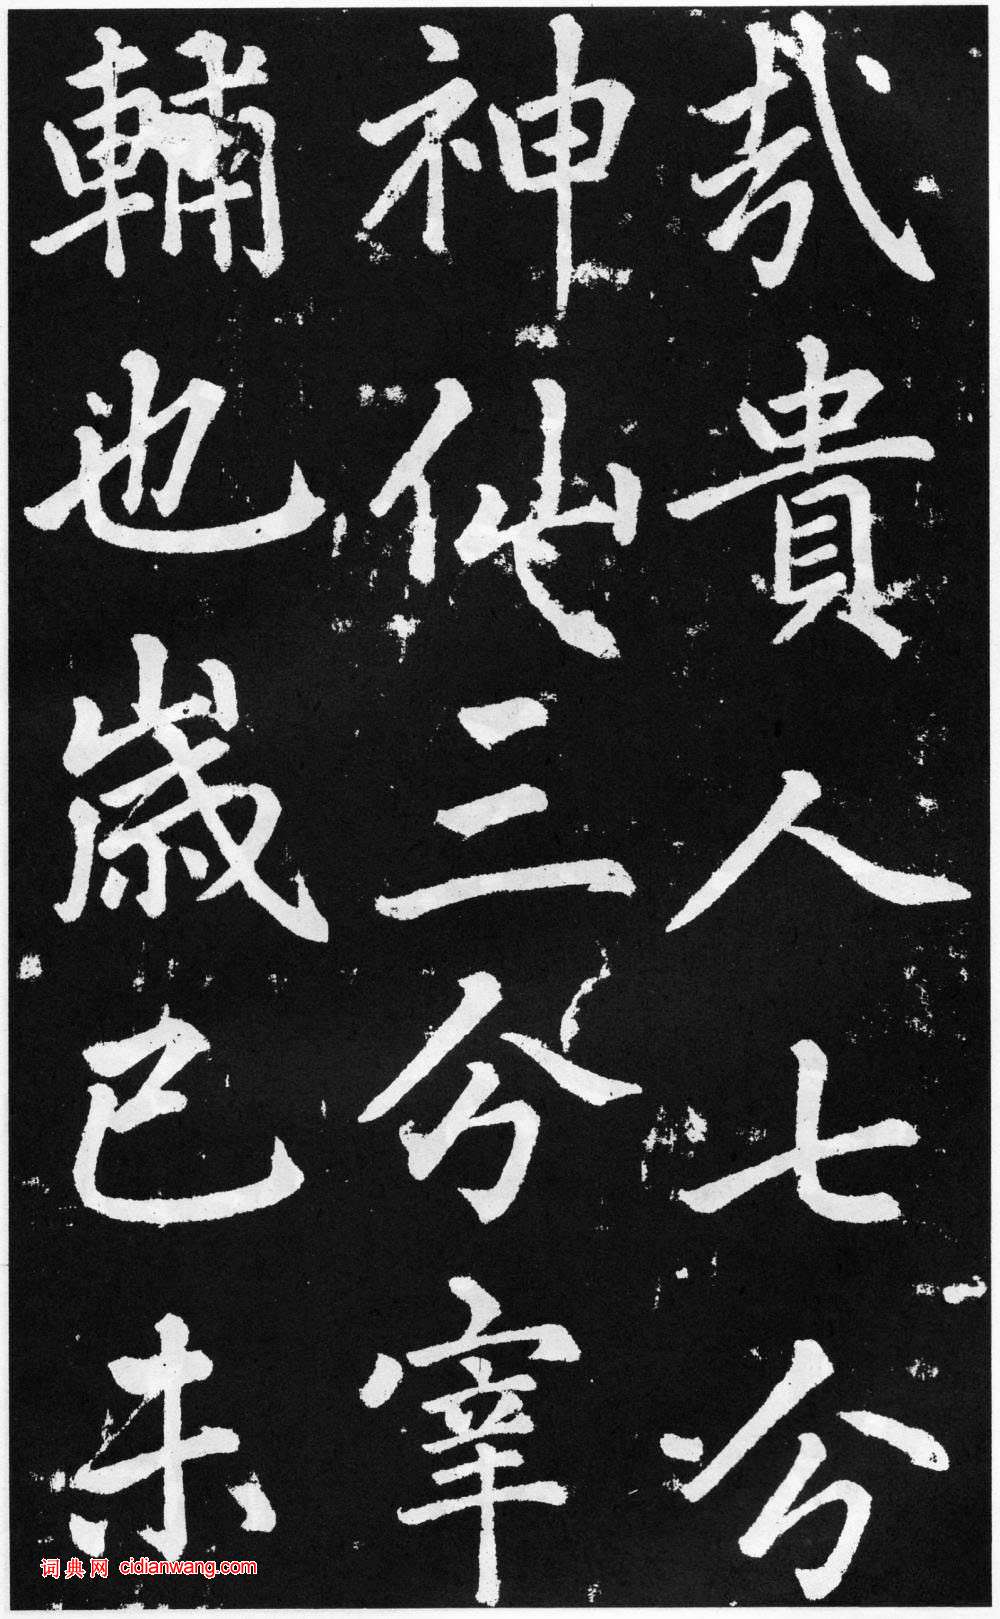 哉貴人七分
神仙三分宰
輔也歲己未
词典网 cidianwang.com